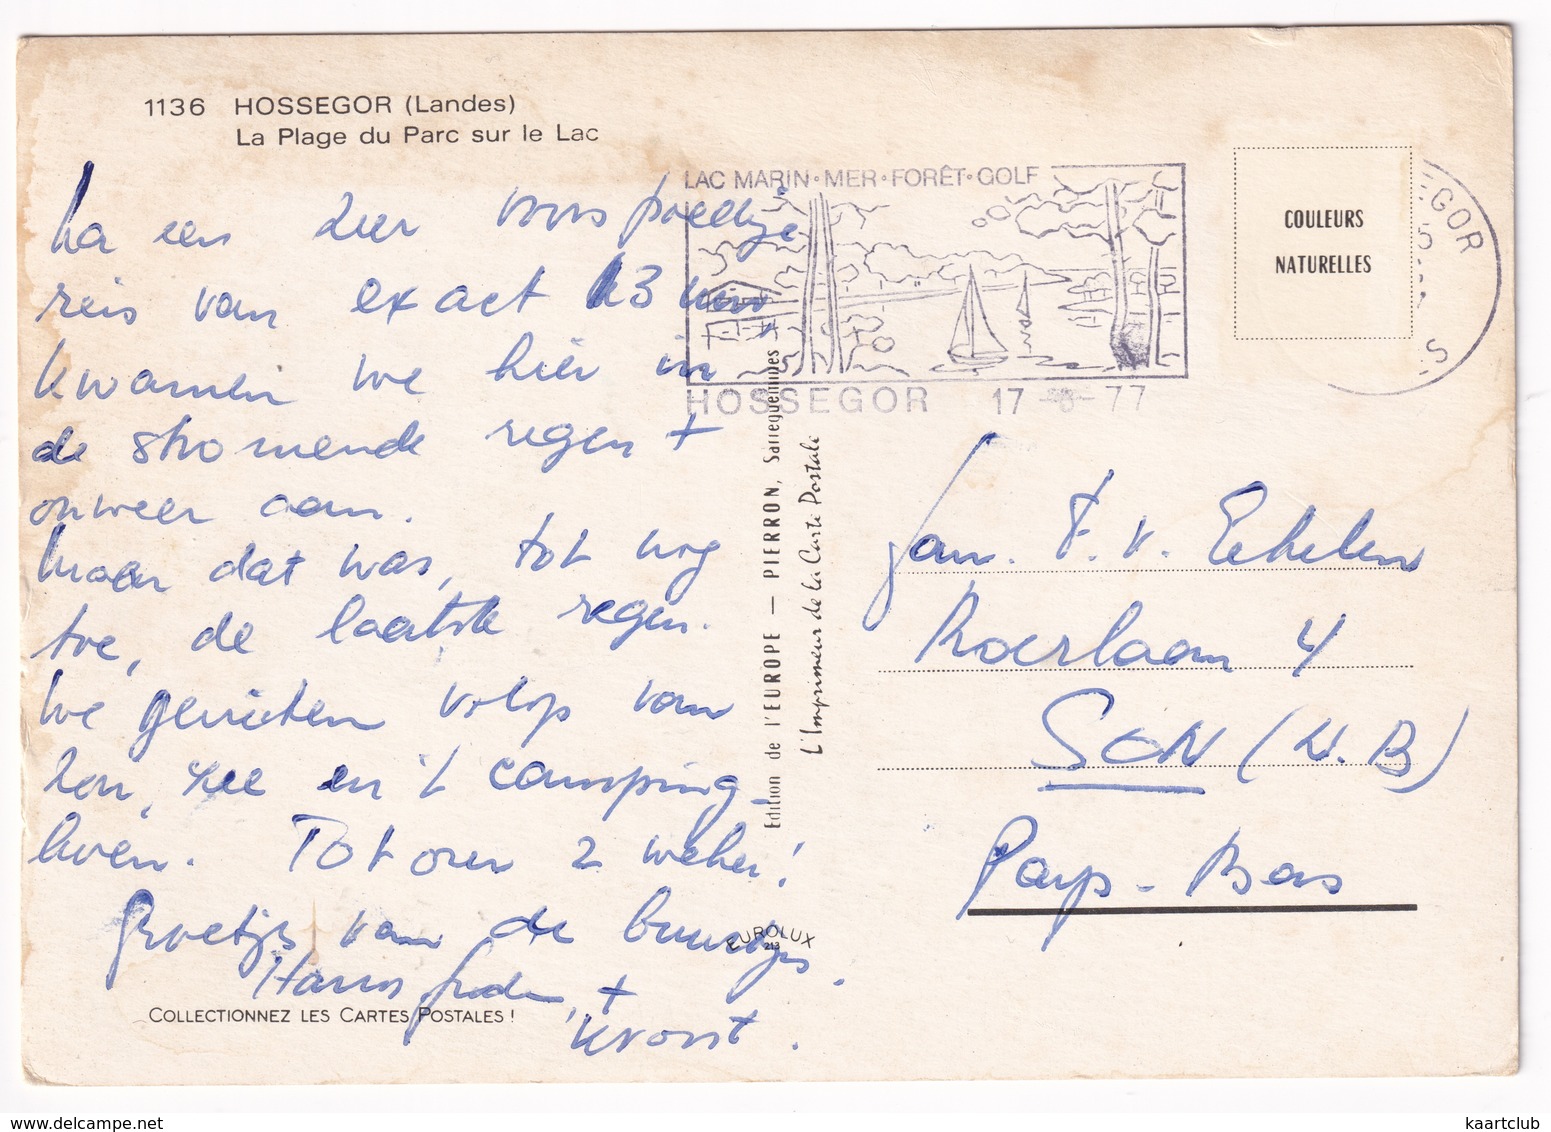 1136 HOSSEGOR (Landes)
La Plage du Parc sur le Lac
Na een zeer voorspoedige
reis van exact 13 uur
kwamen we hier in
de stromende regen +
onweer aan.
Maar dat was, tot nog
toe, de laatste regen.
We genieten volop van
zon, zee en 't camping-
leven. Tot over 2 weken!
Groetjes van de buurtjes.
Hans, +
COLLECTIONNEZ LES CARTES POSTALES !
LAC MARIN·MER·FORÊT·GOLF
HOSSEGOR 17 -8- 77
COULEURS
NATURELLES
EGOR
Edition de l'EUROPE — PIERRON, Sarreguemines
L'Imprimeur de la Carte Postale
EUROLUX
213
Fam. F. v. Eekelen
Roerlaan 4
SON (N.B)
Pays-Bas
delcampe.net
kaartclub